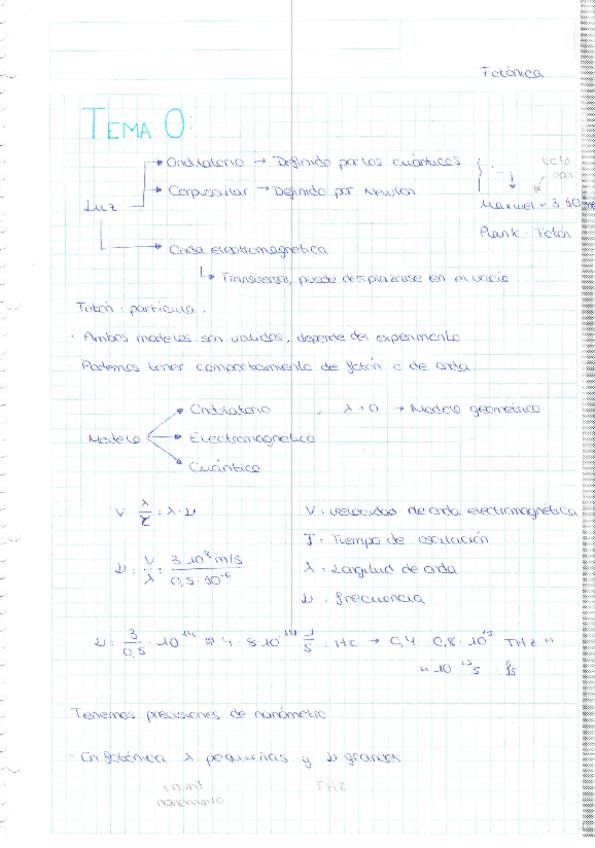 Fotónica
TEMA 0:
Luz
→ Ondulatorio → Definido por los cuánticos
→ Corpuscular → Definido por Newton
Maxwel ~ 3·10
Plank - Fotón
→ Onda electromagnética
↳ Transversal, puede desplazarse en el vacío
Fotón: partícula.
· Ambos modelos son validos, depende del experimento
Podemos tener comportamiento de fotón o de onda.
Modelo
→ Ondulatorio , λ → 0 → Modelo geométrico
→ Electromagnetico
→ Cuántico
V = λ/τ = λ·ν
V = velocidad de onda electromagnética
T = Tiempo de oscilación
ν = V/λ = 3·10⁸ m/s / 0,5·10⁻⁶
λ = Longitud de onda
ν = frecuencia
ν = 3/0,5 · 10¹⁴ ≈ 4 - 8·10¹⁴ 1/s = Hz → 0,4 - 0,8·10¹⁵ THz ~
~ 10⁻¹⁵ s fs
Tenemos precisiones de nanómetro
- En fotónica λ pequeñas y ν grandes
nanómetro
THz